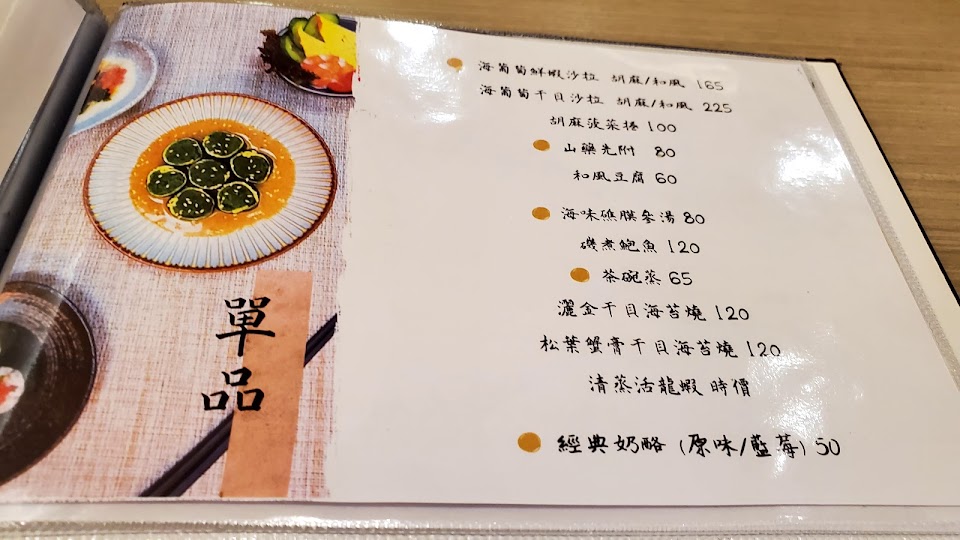 單品
海葡萄鮮蝦沙拉 胡麻/和風 165
海葡萄干貝沙拉 胡麻/和風 225
胡麻菠菜捲 100
山藥先附 80
和風豆腐 60
海味礁膜參湯 80
磯煮鮑魚 120
茶碗蒸 65
灑金干貝海苔燒 120
松葉蟹膏干貝海苔燒 120
清蒸活龍蝦 時價
經典奶酪 (原味/藍莓) 50